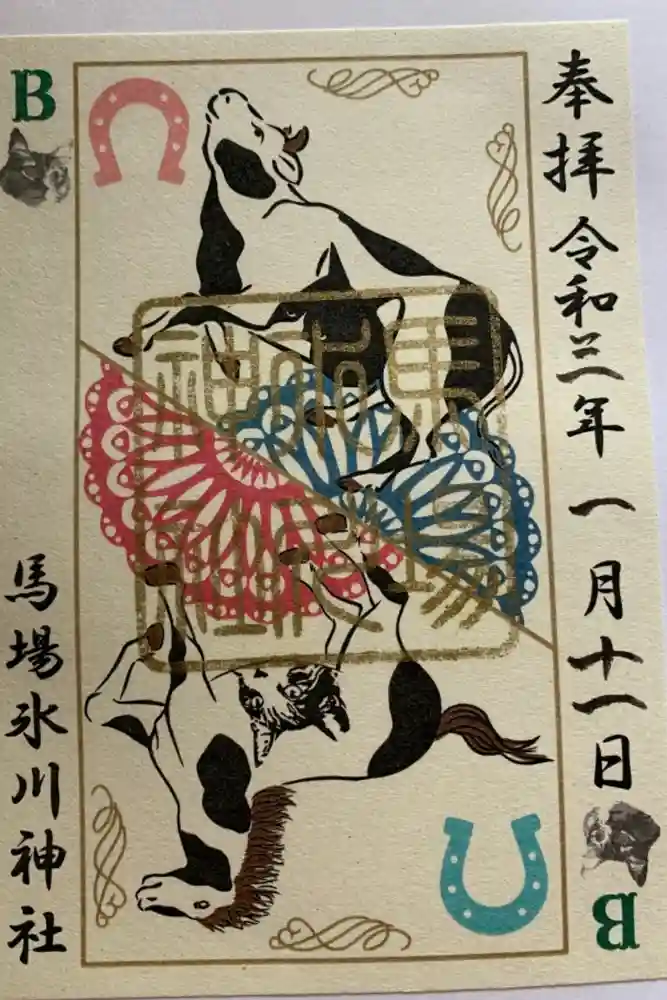 奉拝 令和三年 一月十一日
馬場氷川神社
B
B
馬場
氷川
神社